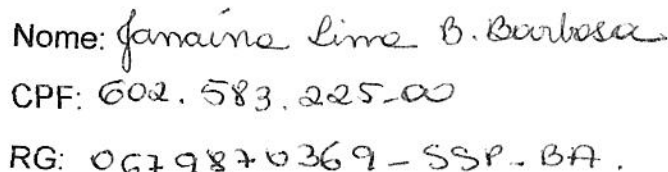 Nome: Janaína Lima B. Barbosa
CPF: 602.583.225-00
RG: 0679870369-SSP-BA.